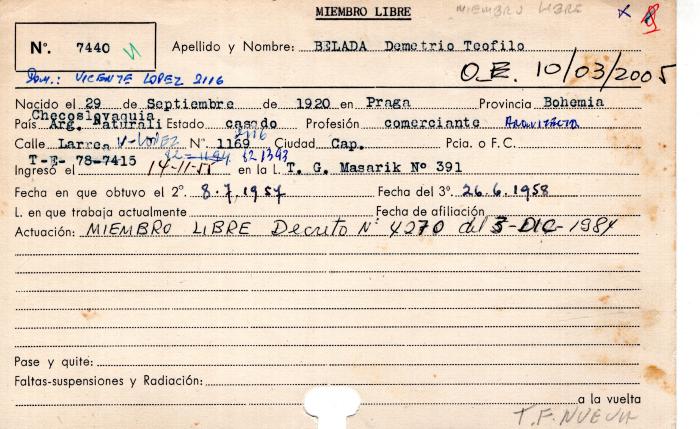 MIEMBRO LIBRE
MIEMBRO LIBRE
Nº. 7440 Apellido y Nombre: BELADA Demetrio Teofilo
DOM.: VICENTE LOPEZ 2116 O.E. 10/03/2005
Nacido el 29 de Septiembre de 1920 en Praga Provincia Bohemia
Checoslovaquia
País Arg. Naturali Estado casado Profesión comerciante ARQUITECTO
Calle Larrea V-LOPEZ Nº 1169 2116 Ciudad Cap. Pcia. o F.C.
T-E- 78-7415 821393
Ingresó el 14-11-55 en la L. T. G. Masarik Nº 391
Fecha en que obtuvo el 2º. 8.7.1957 Fecha del 3º. 26.6.1958
L. en que trabaja actualmente Fecha de afiliación
Actuación: MIEMBRO LIBRE Decreto Nº 4270 del 3-DIC-1984
Pase y quite:
Faltas-suspensiones y Radiación:
a la vuelta
T.F. NUEVA